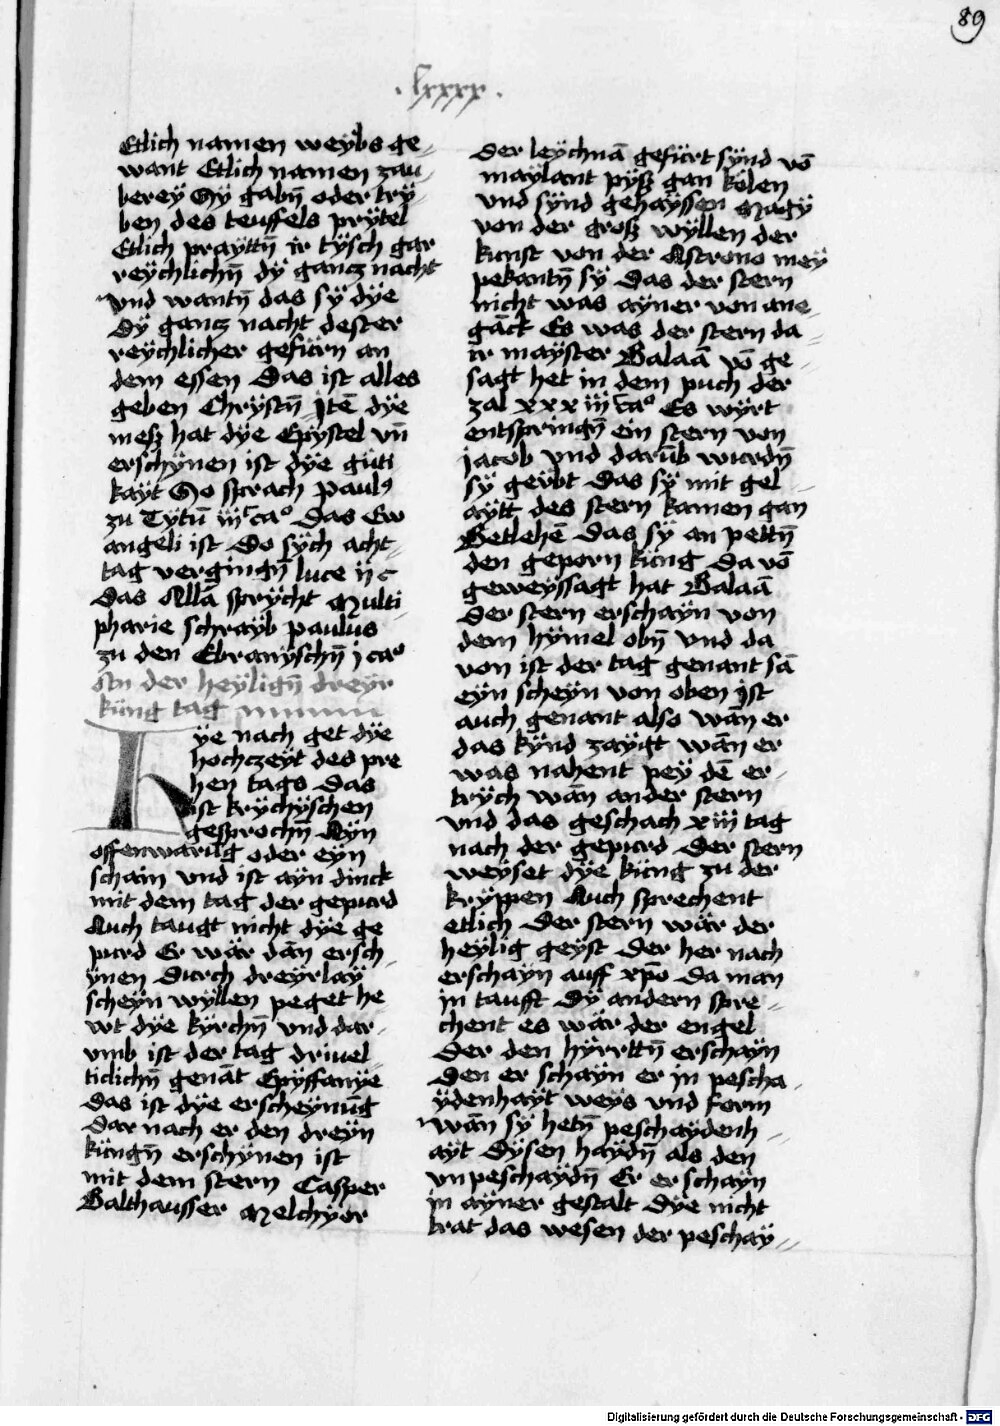 89
. lxxxx .
Etlich namen weybs ge-
want Etlich namen zau-
bereÿ Sÿ gabn̄ oder trÿ-
ben des teuffels prÿtel
Etlich praÿttn̄ ir tÿsch gar
reÿchlichn̄ dÿ gancz nacht
vnd wantn̄ das sÿ dÿe
dÿ gancz nacht dester
reÿchlicher gefürn an
dem essen Das ist alles
geben Chrÿstn̄ Jtē dÿe
mesz hat dÿe Epÿstel vn̄
erschÿnen ist dÿe güti
kaÿt So sprach Paulꝰ
zu Tÿtū iijᵗ caº Das Ew
angeli ist Do sÿch acht-
tag vergingn̄ luce ij c
Das Allā sprÿcht Multi-
pharie schraÿb paulus
zu den Ebranÿschn̄ j caº
Von der heÿlign̄ dreÿr
küng tag
Hÿe nach get dÿe
hochczeÿt des pre
hen tags Das
ist krÿchÿschen
gesprochn̄ Aÿn
offenwarūg oder eÿn
schain vnd ist aÿn dinck
mit dem tag der gepurd
Auch taugt nicht dÿe ge
purd Er wär dān ersch-
ÿnen Durch dreÿrlaÿ
scheÿn wÿllen peget he
wt dÿe kÿrchn̄ vnd dar-
vmb ist der tag driuel-
ticlichn̄ genāt Epÿffanÿe
das ist dÿe erscheÿnūg
Dar nach er den dreÿn
küngn̄ erschÿnen ist
mit dem stern Casper
Balthausser Melchÿor
der leÿchnā gefürt sÿnd vō
maÿlant pÿsz gan kölen
vnd sÿnd gehaÿssen Magÿ
von der grosz wÿllen der
kunst von der Astrono meÿ
pekantn̄ sÿ das der stern
nicht was aÿner von ane-
gāck Es was der stern da-
ir maÿster Balaā vō ge-
sagt het in dem puch der
zal xxx iiij caº Es wÿrt
entspringn̄ ein stern von
jacob vnd darūb wurdn̄
sÿ geÿbt Das sÿ mit gel-
aÿtt des stern kamen gan
Betlehē das sÿ an pettn̄
den geporn küng da vō
geweÿssagt hat Balaā
Der stern erschaÿn von
dem hÿmel obn̄ vnd da
von ist der tag genant sā
eÿn scheÿn von oben jst
auch genant also wān er
das kÿnd zaÿgt wān er
was nahent peÿ dē er-
trÿch wān ander stern
vnd das geschach xiij tag
nach der gepurd Der stern
weÿset dÿe küng zu der
krÿppen Auch sprechent
etlich Der stern wär der
heÿlig geÿst Der her nach
erschaÿn auff xp̄o da man
in taufft Dÿ andern spre-
chent es wär der engel
Der den hÿrrttn̄ erschaÿn
Den er schaÿn er in pescha-
ÿdenhaÿt weÿs vnd form
wān sÿ hetn̄ peschaÿdenh-
aÿt Dÿsen haÿdn̄ als den
vn peschaÿdn̄ Er er schaÿn
in aÿner gestalt Dÿe nicht
trat das wesen der peschaÿ-
Digitalisierung gefördert durch die Deutsche Forschungsgemeinschaft - DFG